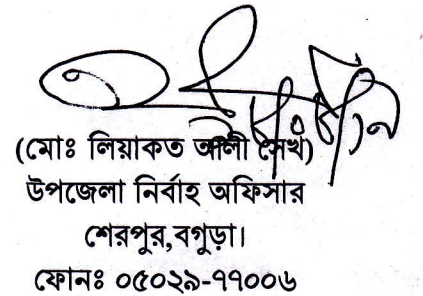 (মোঃ লিয়াকত আলী সেখ)
উপজেলা নির্বাহ অফিসার
শেরপুর,বগুড়া।
ফোনঃ ০৫০২৯-৭৭০০৬